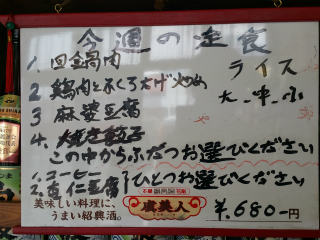 今週の定食
1. 回鍋肉
ライス
2 鶏肉とふくろたけ炒め
大.中.小
3 麻婆豆腐
4. 焼き餃子
この中からふたつお選びください
1. コーヒー
2. 杏仁豆腐
ひとつお選びください
美味しい料理に、
うまい紹興酒。
虞美人
¥.680-円